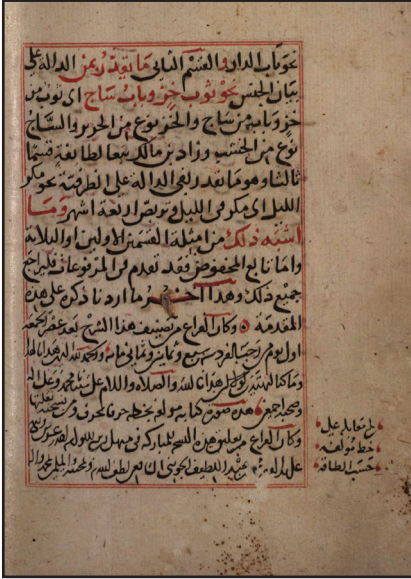 نحو باب الدار والقسم الثاني ما يقدر بمن الدالة على
بيان الجنس نحو ثوب خز وباب ساج اي ثوب من
خز وباب من ساج والخز نوع من الحرير والساج
نوع من الخشب وزاد بن مالك تبعا لطائفة قسما
ثالثا وهو ما يقدر بفي الدالة على الظرفية نحو مكر
الليل اي مكر في الليل وتربص اربعة اشهر وما
اشبه ذلك من امثلة القسمين الاولين او الثلاثة
واما تابع المخفوض فقد تقدم في المرفوعات فليراجع
جميع ذلك وهذا اخر ما اردنا ذكره على هذه
المقدمة وكان الفراغ من تصنيف هذا الشرح بعد عصر الجمعة
اول يوم من رجب الفرد سبع وثمانين وثماني مائة والحمد لله الذي هدانا لهذا
وما كنا لنهتدي لولا ان هدانا الله والصلاة والسلام على سيدنا محمد وعلى اله
وصحبه اجمعين هذه صورة كتابة مولفه بخطه حرفا بحرف ومن نسخته نقلتها
وكان الفراغ من تعليق هذه النسخة المباركة في
عبد اللطيف
بلغ مقابلة على
خط مؤلفه
حسب الطاقة